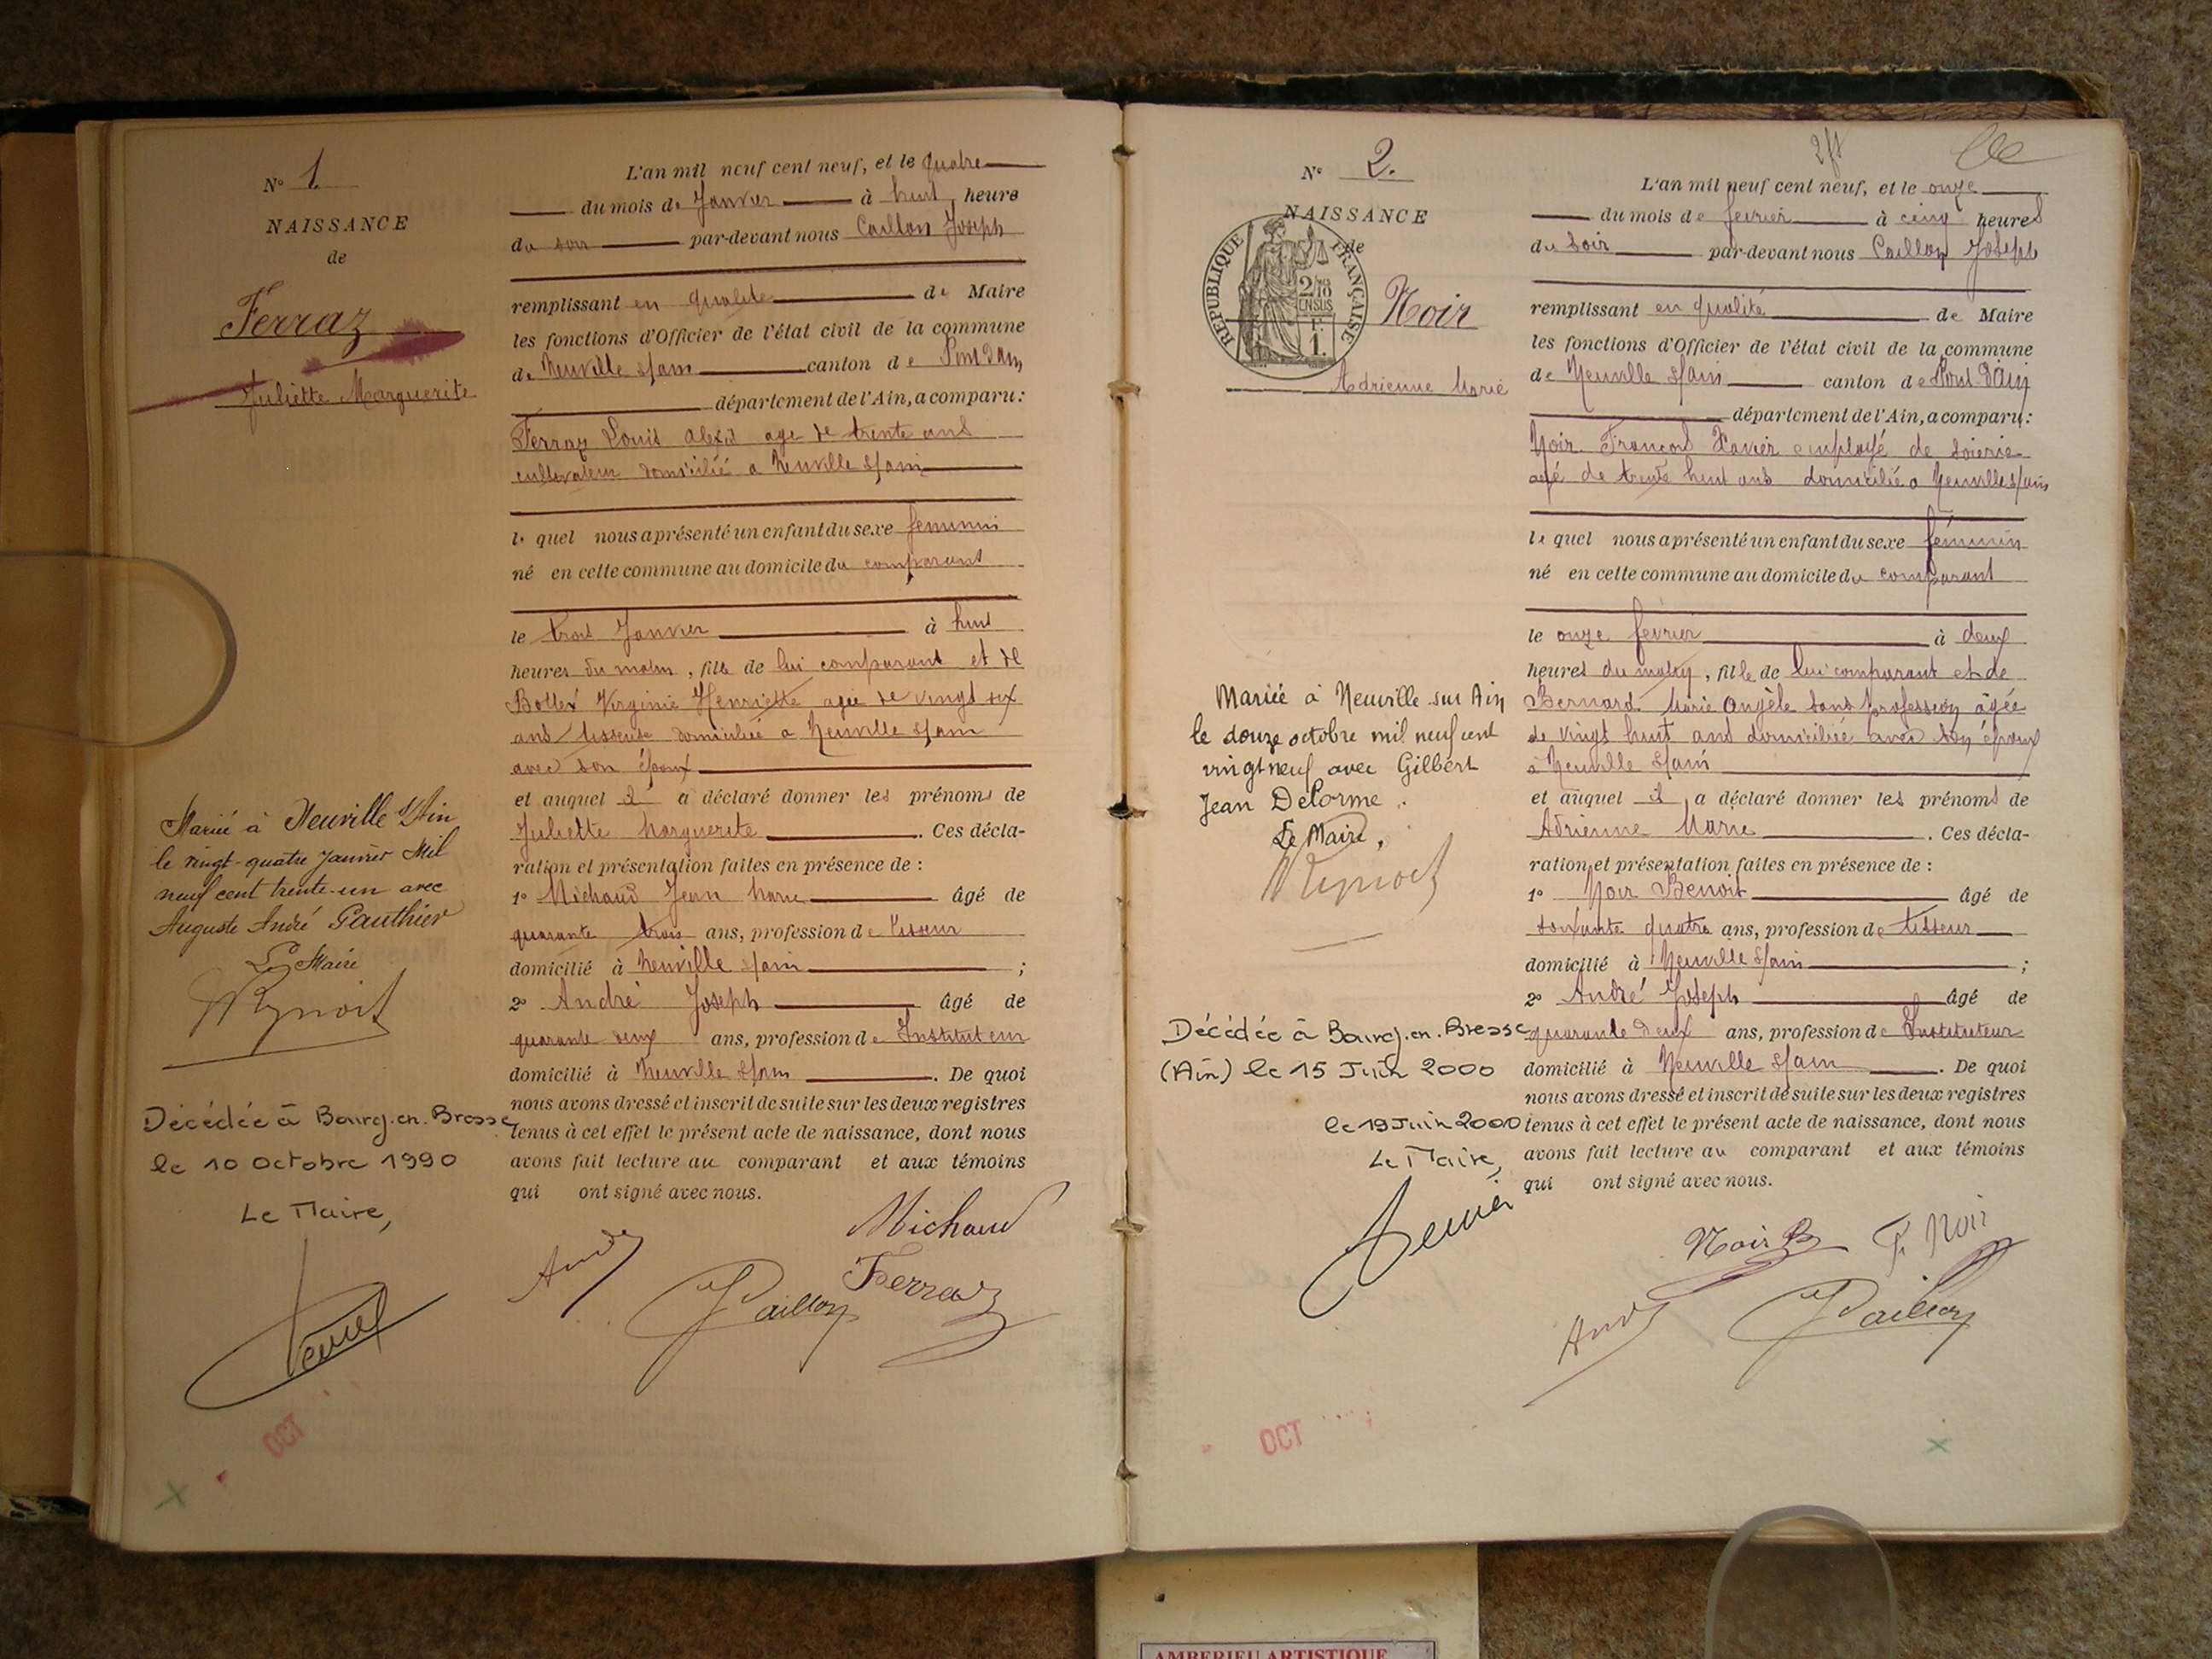 Nº 1.
NAISSANCE
de
Ferraz
Juliette Marguerite
Mariée à Neuville s/Ain
le vingt-quatre Janvier Mil
neuf cent trente-un avec
Auguste André Gauthier
Le Maire
Décédée à Bourg.en.Bresse
le 10 Octobre 1990
Le Maire,
OCT
L'an mil neuf cent neuf, et le quatre
du mois de Janvier à huit heure
du soir par-devant nous Caillon Joseph
remplissant en qualité de Maire
les fonctions d'Officier de l'état civil de la commune
de Neuville s/ain canton de Pont d'Ain
département de l'Ain, a comparu:
Ferraz Louis Alexis age de trente ans
cultivateur domicilié a Neuville s/ain
lequel nous a présenté un enfant du sexe feminin
né en cette commune au domicile du comparant
le trois Janvier à huit
heures du matin, fille de lui comparant et de
Bollex Virginie Henriette agée de vingt six
ans tisseuse domiciliée a Neuville s/ain
avec son époux
et auquel il a déclaré donner les prénoms de
Juliette Marguerite. Ces décla-
ration et présentation faites en présence de :
1º Michaud Jean Marie âgé de
quarante trois ans, profession de tisseur
domicilié à Neuville s/ain ;
2º André Joseph âgé de
quarante deux ans, profession de Instituteur
domicilié à Neuville s/ain. De quoi
nous avons dressé et inscrit de suite sur les deux registres
tenus à cet effet le présent acte de naissance, dont nous
avons fait lecture au comparant et aux témoins
qui ont signé avec nous.
Michaud
André
Ferraz
JCaillon
Nº 2.
NAISSANCE
de
REPUBLIQUE FRANÇAISE
Noir
Adrienne Marie
Mariée à Neuville sur Ain
le douze octobre mil neuf cent
vingt neuf avec Gilbert
Jean Delorme.
Le Maire,
Décédée à Bourg.en.Bresse
(Ain) le 15 Juin 2000
le 19 Juin 2000
Le Maire,
OCT
L'an mil neuf cent neuf, et le onze
du mois de fevrier à cinq heures
du soir par-devant nous Caillon Joseph
remplissant en qualité de Maire
les fonctions d'Officier de l'état civil de la commune
de Neuville s/ain canton de Pont d'Ain
département de l'Ain, a comparu:
Noir François Xavier employé de soierie
agé de trente huit ans domicilié a Neuville s/ain
lequel nous a présenté un enfant du sexe féminin
né en cette commune au domicile du comparant
le onze fevrier à deux
heures du matin, fille de lui comparant et de
Bernard Marie Angèle sans profession âgée
de vingt huit ans domiciliée avec son époux
à Neuville s/ain
et auquel il a déclaré donner les prénoms de
Adrienne Marie. Ces décla-
ration et présentation faites en présence de :
1º Noir Benoit âgé de
soixante quatre ans, profession de tisseur
domicilié à Neuville s/ain ;
2º André Joseph âgé de
quarante deux ans, profession de Instituteur
domicilié à Neuville s/ain. De quoi
nous avons dressé et inscrit de suite sur les deux registres
tenus à cet effet le présent acte de naissance, dont nous
avons fait lecture au comparant et aux témoins
qui ont signé avec nous.
Noir B F. Noir
André
JCaillon
AMBERIEU ARTISTIQUE